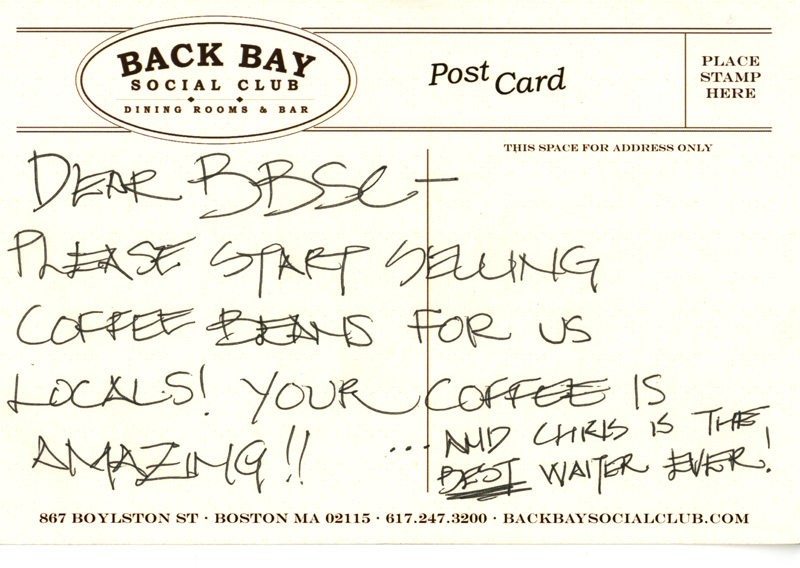 BACK BAY
SOCIAL CLUB
DINING ROOMS & BAR
Post Card
PLACE
STAMP
HERE
THIS SPACE FOR ADDRESS ONLY
DEAR BBSC—
PLEASE START SELLING
COFFEE BEANS FOR US
LOCALS! YOUR COFFEE IS
AMAZING!!
...AND CHRIS IS THE
BEST WAITER EVER!
867 BOYLSTON ST · BOSTON MA 02115 · 617.247.3200 · BACKBAYSOCIALCLUB.COM